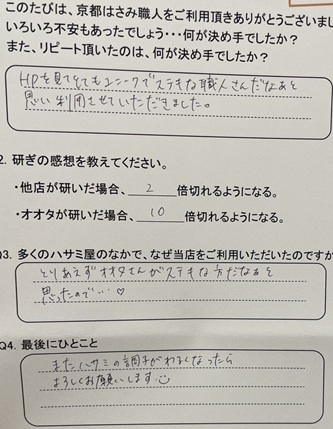 このたびは、京都はさみ職人をご利用頂きありがとうございまし
いろいろ不安もあったでしょう・・・何が決め手でしたか？
また、リピート頂いたのは、何が決め手でしたか？
HPを見てとてもユニークでステキな職人さんだなぁと
思い利用させていただきました。
2. 研ぎの感想を教えてください。
・他店が研いだ場合、 2 倍切れるようになる。
・オオタが研いだ場合、 10 倍切れるようになる。
Q3. 多くのハサミ屋のなかで、なぜ当店をご利用いただいたのですか
とりあえずオオタさんがステキな方だなぁと
思ったので・・・♡
Q4. 最後にひとこと
またハサミの調子がわるくなったら
よろしくお願いします☺